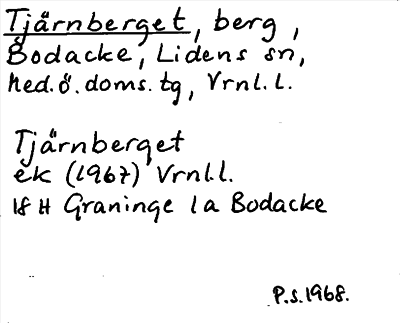 Tjärnberget, berg,
Bodacke, Lidens sn,
Med.ö.doms.tg, Vrnl.l.
Tjärnberget
ek (1967) Vrnl.l.
18 H Graninge 1a Bodacke
P.S.1968.